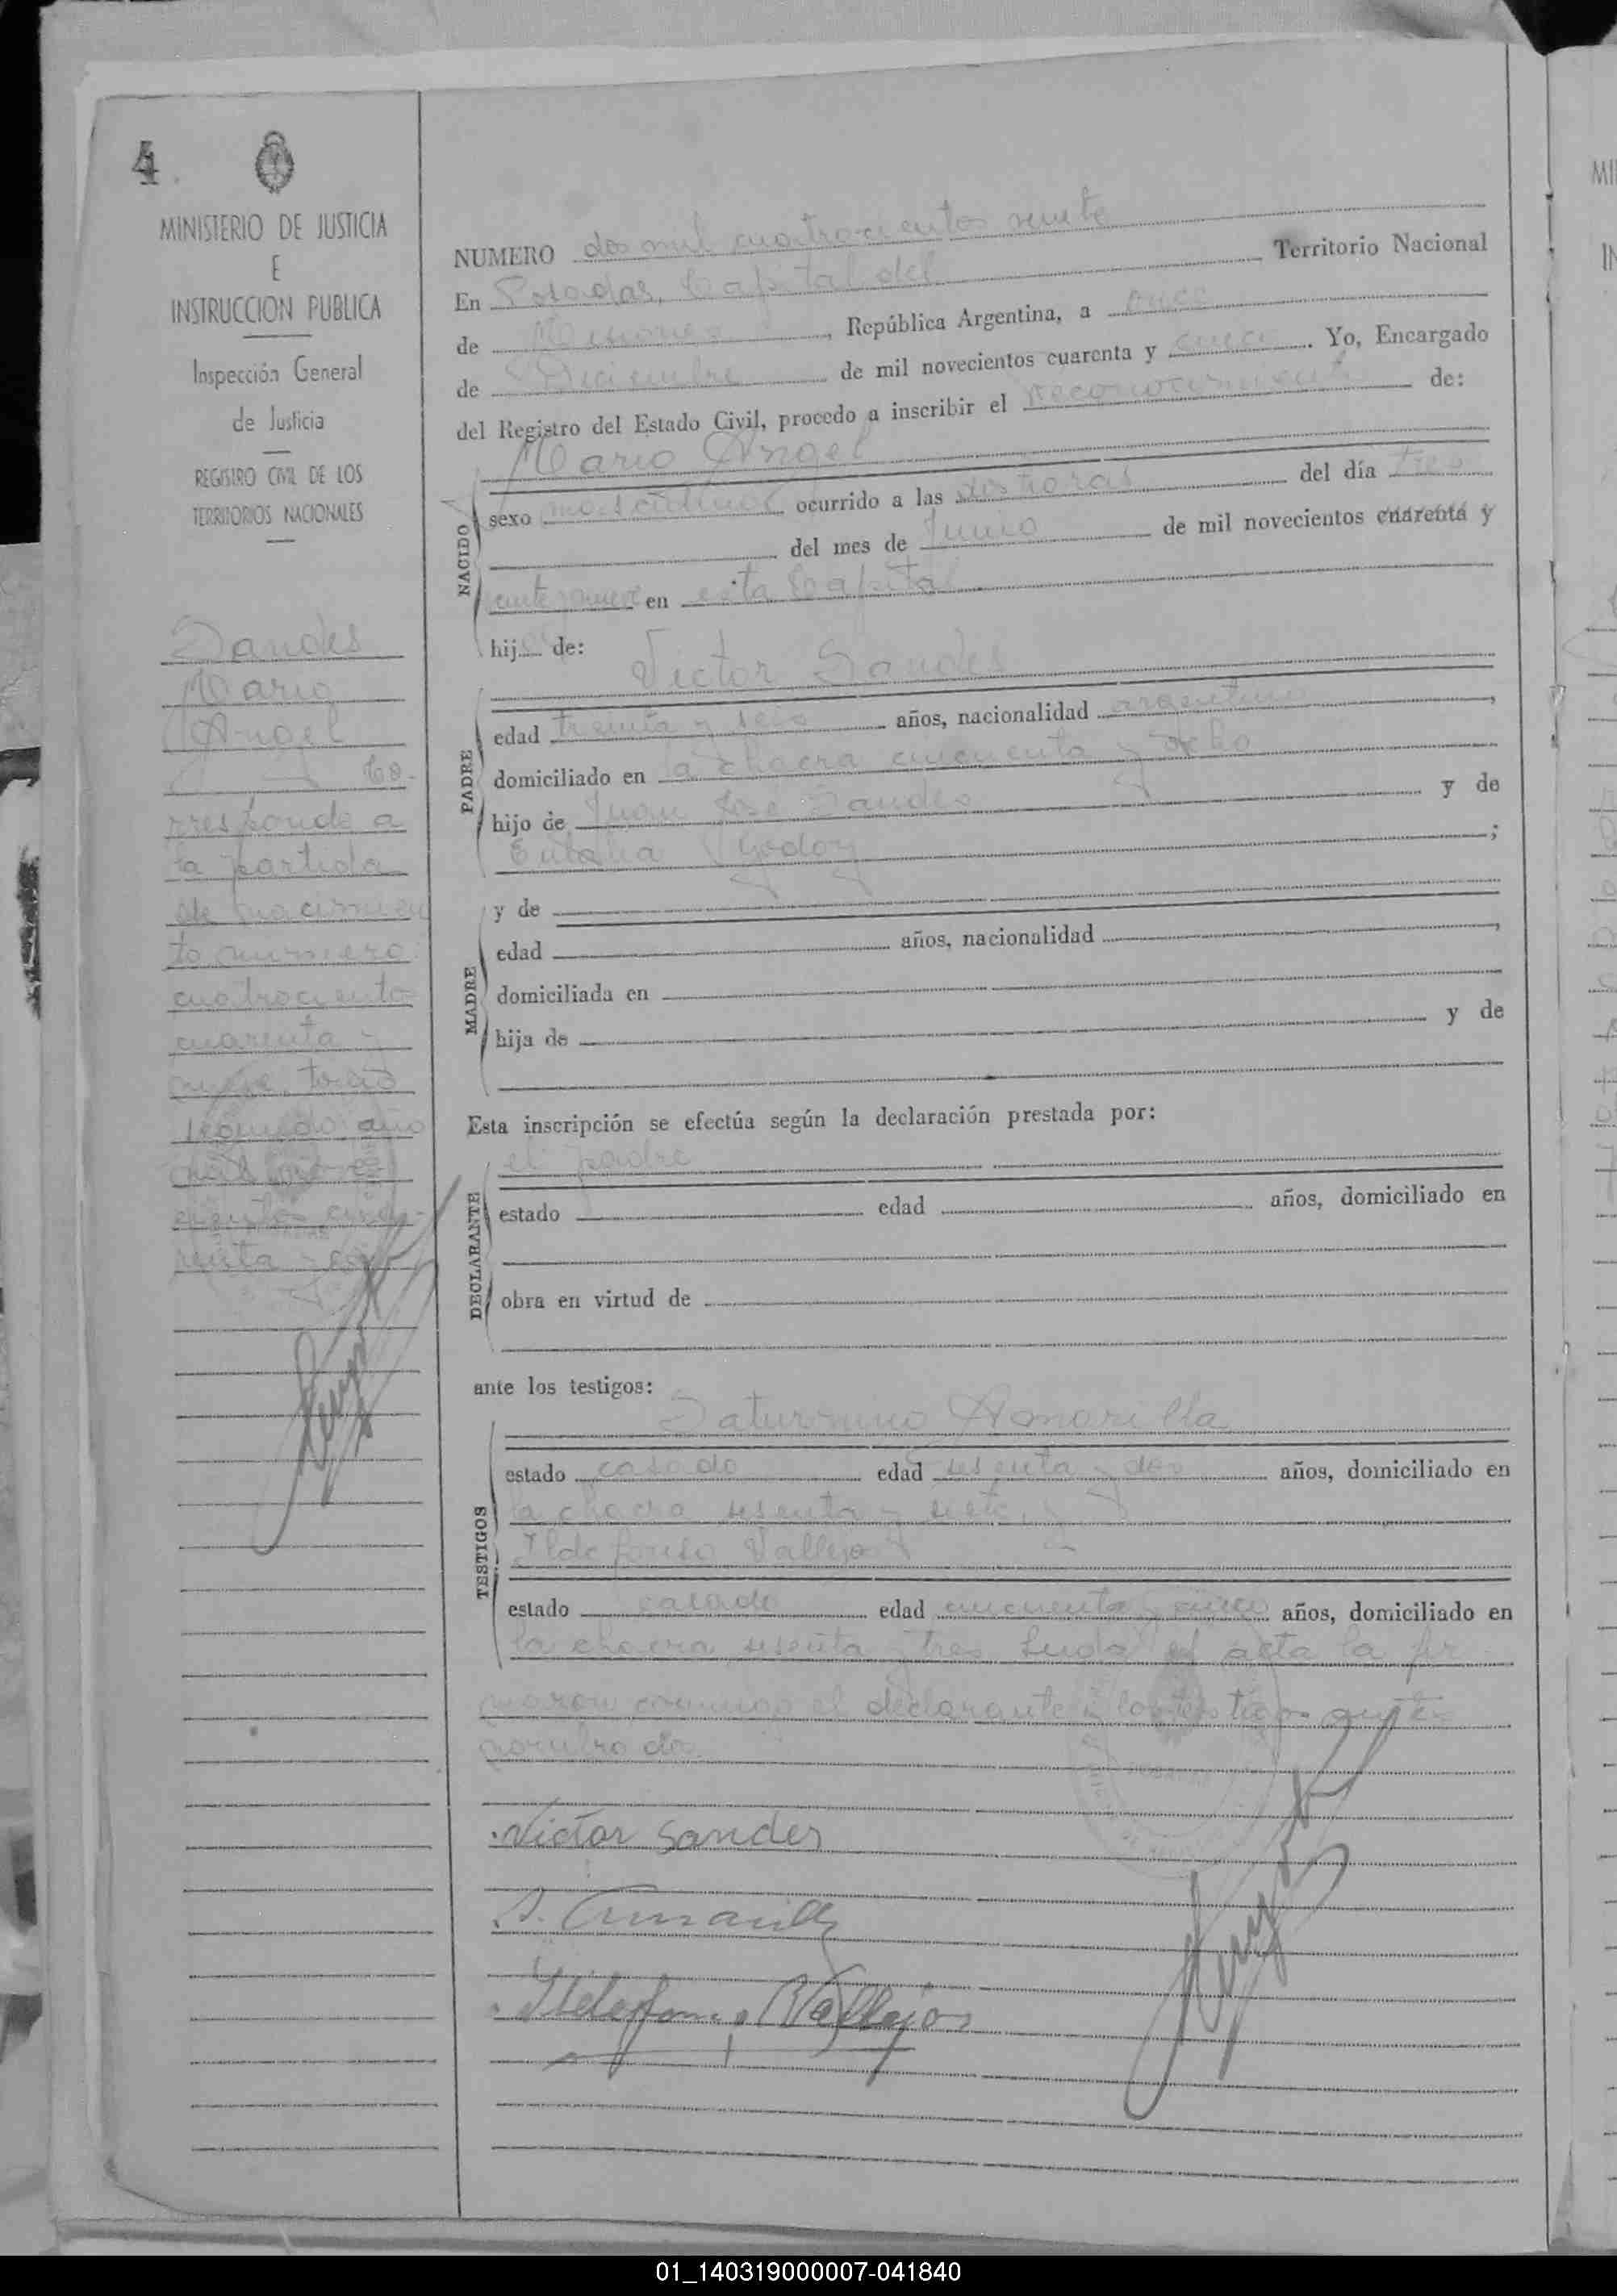 4
MINISTERIO DE JUSTICIA
E
INSTRUCCION PUBLICA
Inspección General
de Justicia
REGISTRO CIVIL DE LOS
TERRITORIOS NACIONALES
Sandes
Mario
Angel
Co-
rresponde a
la partida
de nacimien
to número
cuatrocientos
cuarenta y
nueve, tomo
segundo año
mil nove-
cientos
NUMERO dos mil cuatrocientos veinte
En Posadas, Capital del Territorio Nacional
de Misiones, República Argentina, a once
de Diciembre de mil novecientos cuarenta y cinco. Yo, Encargado
del Registro del Estado Civil, procedo a inscribir el reconocimiento de:
Mario Angel
NACIDO
sexo masculino ocurrido a las dos horas del día tres
del mes de Junio de mil novecientos cuarenta y
en esta Capital
hijo de:
Victor Sandes
PADRE
edad treinta y seis años, nacionalidad argentino,
domiciliado en la chacra cincuenta y ocho
hijo de Juan José Sandes y de
Eulalia Godoy;
MADRE
y de
edad años, nacionalidad ,
domiciliada en
hija de y de
Esta inscripción se efectúa según la declaración prestada por:
el padre
DECLARANTE
estado edad años, domiciliado en
obra en virtud de
ante los testigos:
Saturnino Amarilla
TESTIGOS
estado casado edad sesenta y dos años, domiciliado en
la chacra sesenta y siete, y
Ildefonso Vallejos
estado casado edad cincuenta y cinco años, domiciliado en
la chacra sesenta y tres. Leída el acta la fir
maron conmigo el declarante y los testigos antes
nombrados.
Victor Sandes
S. Amarilla
Ildefonso Vallejos
01_140319000007-041840